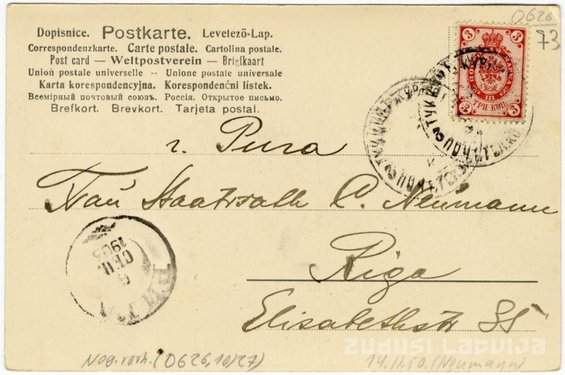 Dopisnice. Postkarte. Levelező-Lap.
Correspondenzkarte. Carte postale. Cartolina postale.
Post card — Weltpostverein — Briefkaart
Union postale universelle — Unione postale universale
Karta korespondencyjna. Korespondenční lístek.
Всемірный почтовый союзъ. Россія. Открытое письмо.
Brefkort. Brevkort. Tarjeta postal.
0626
73
3 3
ТРИ КОП.
г. Рига
Frau Staatsrath C. Neumann
Riga
Elisabethstr 85
1905
РИГА
(0626,10/27)
(Neumann)
ZUDUSI LATVIJA